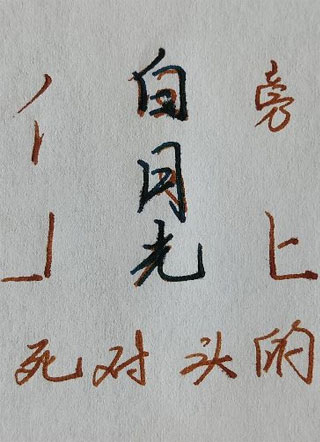 亻
白月光
旁
上
死对头的